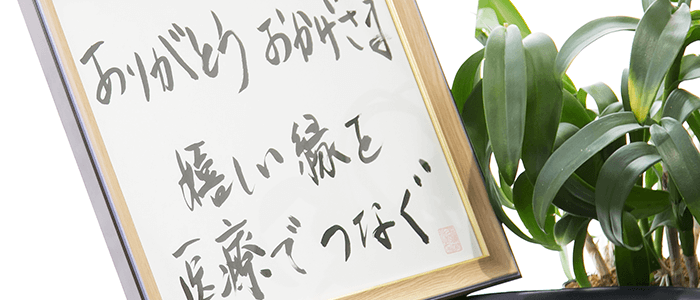 ありがとう おかげさま
嬉しい縁を
医療でつなぐ